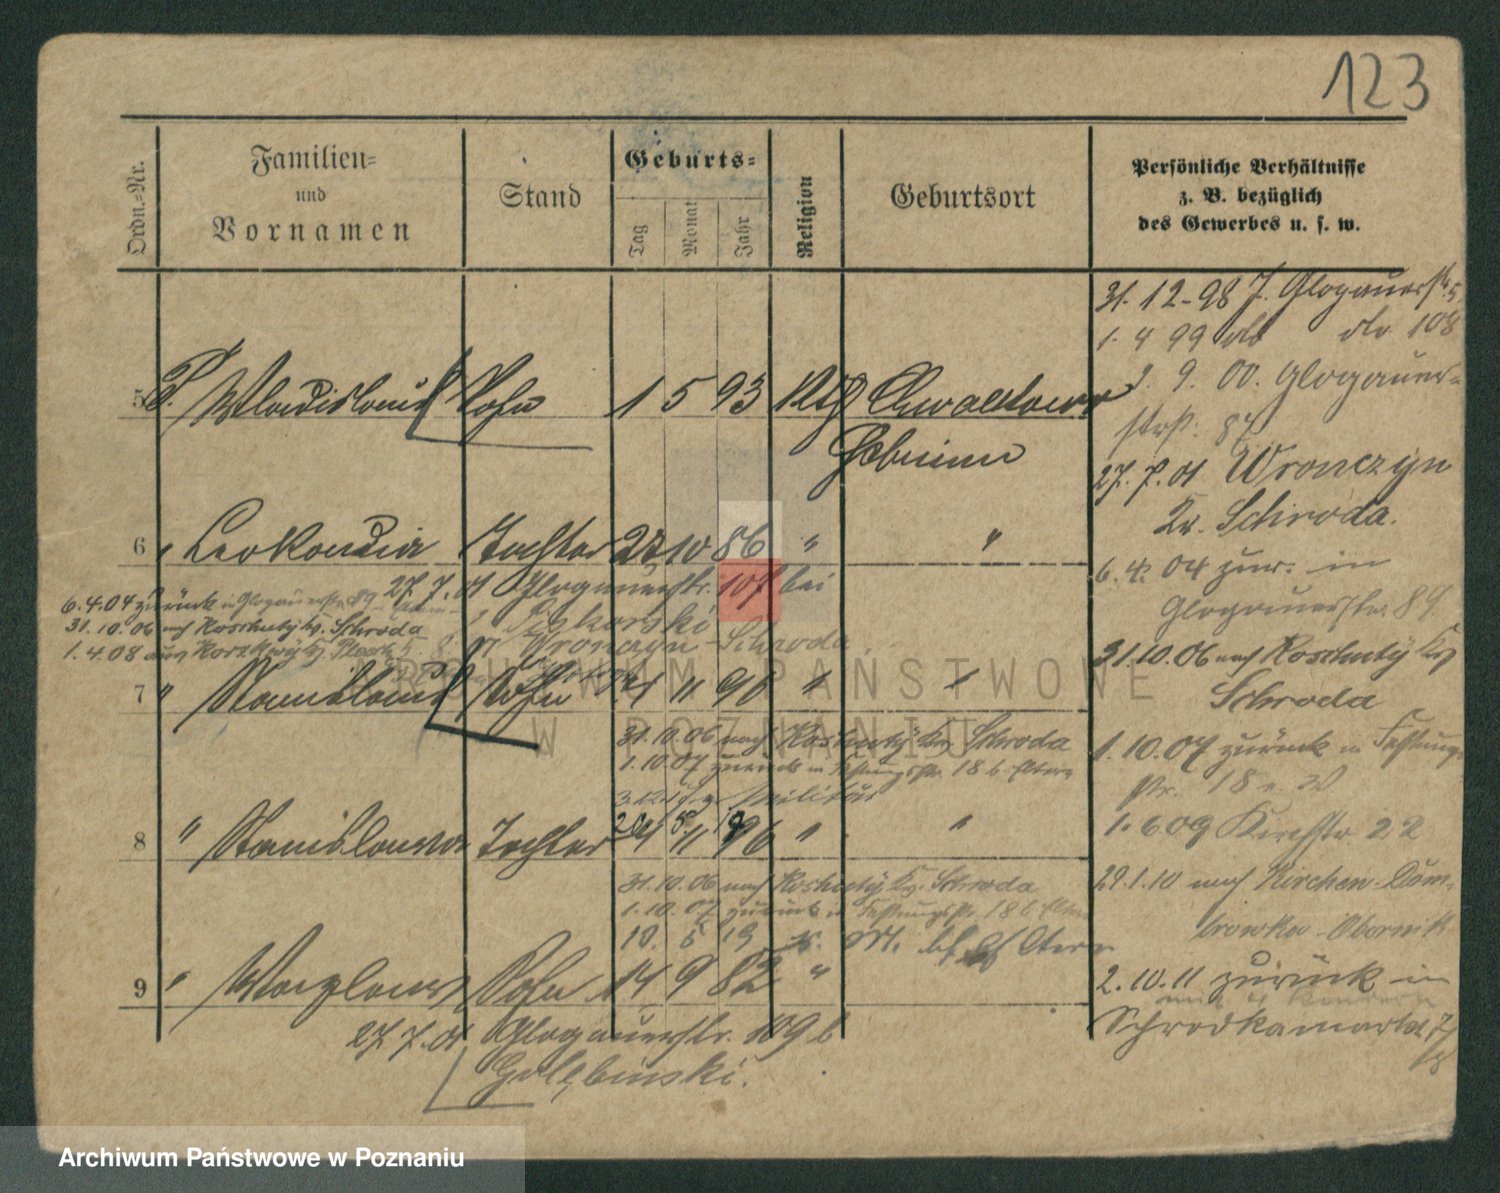 123
Ordn.-Nr.
Familien-
und
Vornamen
Stand
Geburts-
Tag
Monat
Jahr
Religion
Geburtsort
Persönliche Verhältnisse
z. B. bezüglich
des Gewerbes u. s. w.
5 Wladislaus Sohn 1 5 93 kth
6 " Leokondia Tochter 27 10 86 " "
27.7.01 Glogauerstr. 107 bei
Piskorski
Wronczyn - Schroda
6.4.04 zurück in Glogauerstr. 89
31.10.06 nach Koschuty Kr. Schroda
1.4.08 aus
7 " Stanislaus Sohn 11 90 " "
31.10.06 nach Koschuty Kr. Schroda
1.10.07 zurück in Festungsstr. 18 b. Eltern
Militär
8 " Stanislawa Tochter 11 96 " "
31.10.06 nach Koschuty Kr. Schroda
1.10.07 zurück in Festungsstr. 18 b. Eltern
9 " Sohn 14 9 82 "
27.7.01 Glogauerstr. 109 b
Golębinski.
31.12.98 J. Glogauerstr. 5
1.4 99 do 108
9. 00. Glogauer-
str. 87
27.7.01 Wronczyn
Kr. Schroda.
6.4.04 zur. in
Glogauerstr. 89.
31.10.06 nach Koschuty Kr.
Schroda
1.10.07 zurück in Festungs-
str. 18
1.6 09 Kirchstr. 22
29.1.10 nach Kirchen-Dom-
browka-Obornik
2.10.11 zurück in
mit 4 Kindern
Schrodkamarkt 7
ARCHIWUM PAŃSTWOWE
W POZNANIU
Archiwum Państwowe w Poznaniu